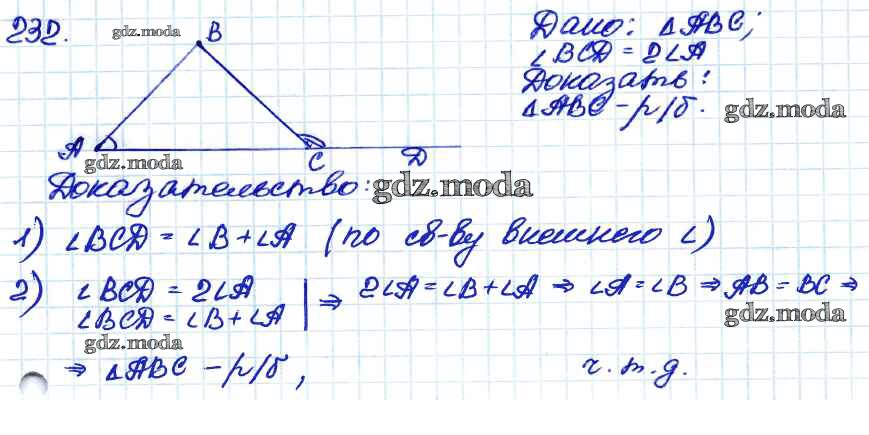 232.
gdz.moda
B
A
C
D
gdz.moda
Дано: △ABC;
∠BCD = 2∠A
Доказать:
△ABC – р/б.
gdz.moda
Доказательство:
gdz.moda
1) ∠BCD = ∠B + ∠A (по св-ву внешнего ∠)
2) ∠BCD = 2∠A
∠BCD = ∠B + ∠A | ⇒ 2∠A = ∠B + ∠A ⇒ ∠A = ∠B ⇒ AB = BC ⇒
gdz.moda
gdz.moda
⇒ △ABC – р/б, ч.т.д.